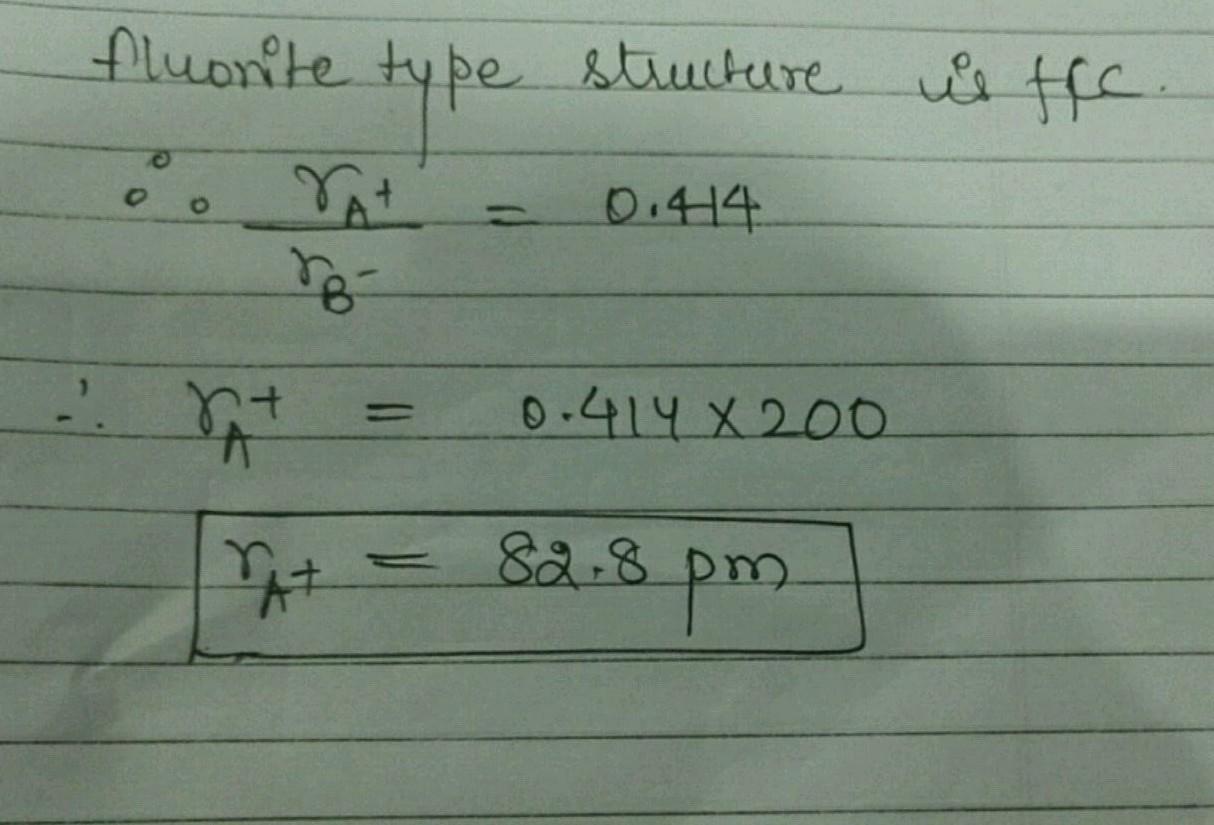 fluorite type structure is fcc.
∴ r_A+ / r_B- = 0.414
∴ r_A+ = 0.414 x 200
r_A+ = 82.8 pm